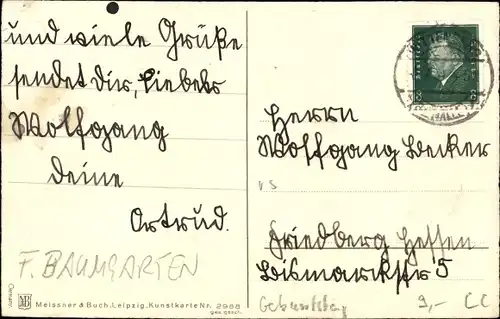 und viele Grüße
sendet Dir, liebes
Wolfgang
Deine
Ortrud.
F. BAUMGARTEN
Germany
Meissner & Buch, Leipzig, Kunstkarte Nr. 2988
ges. gesch.
Herrn
Wolfgang Becker
VS
Friedberg Hessen
Bismarckstr 5
Geburtstag
9,- CC
8
8